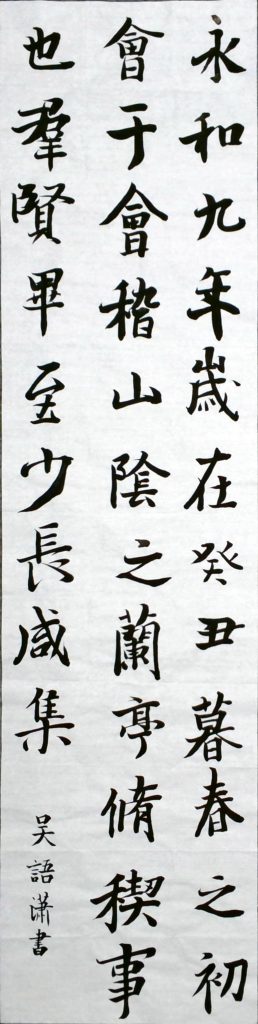 永和九年歲在癸丑暮春之初
會于會稽山陰之蘭亭脩稧事
也羣賢畢至少長咸集
吳語瀟書